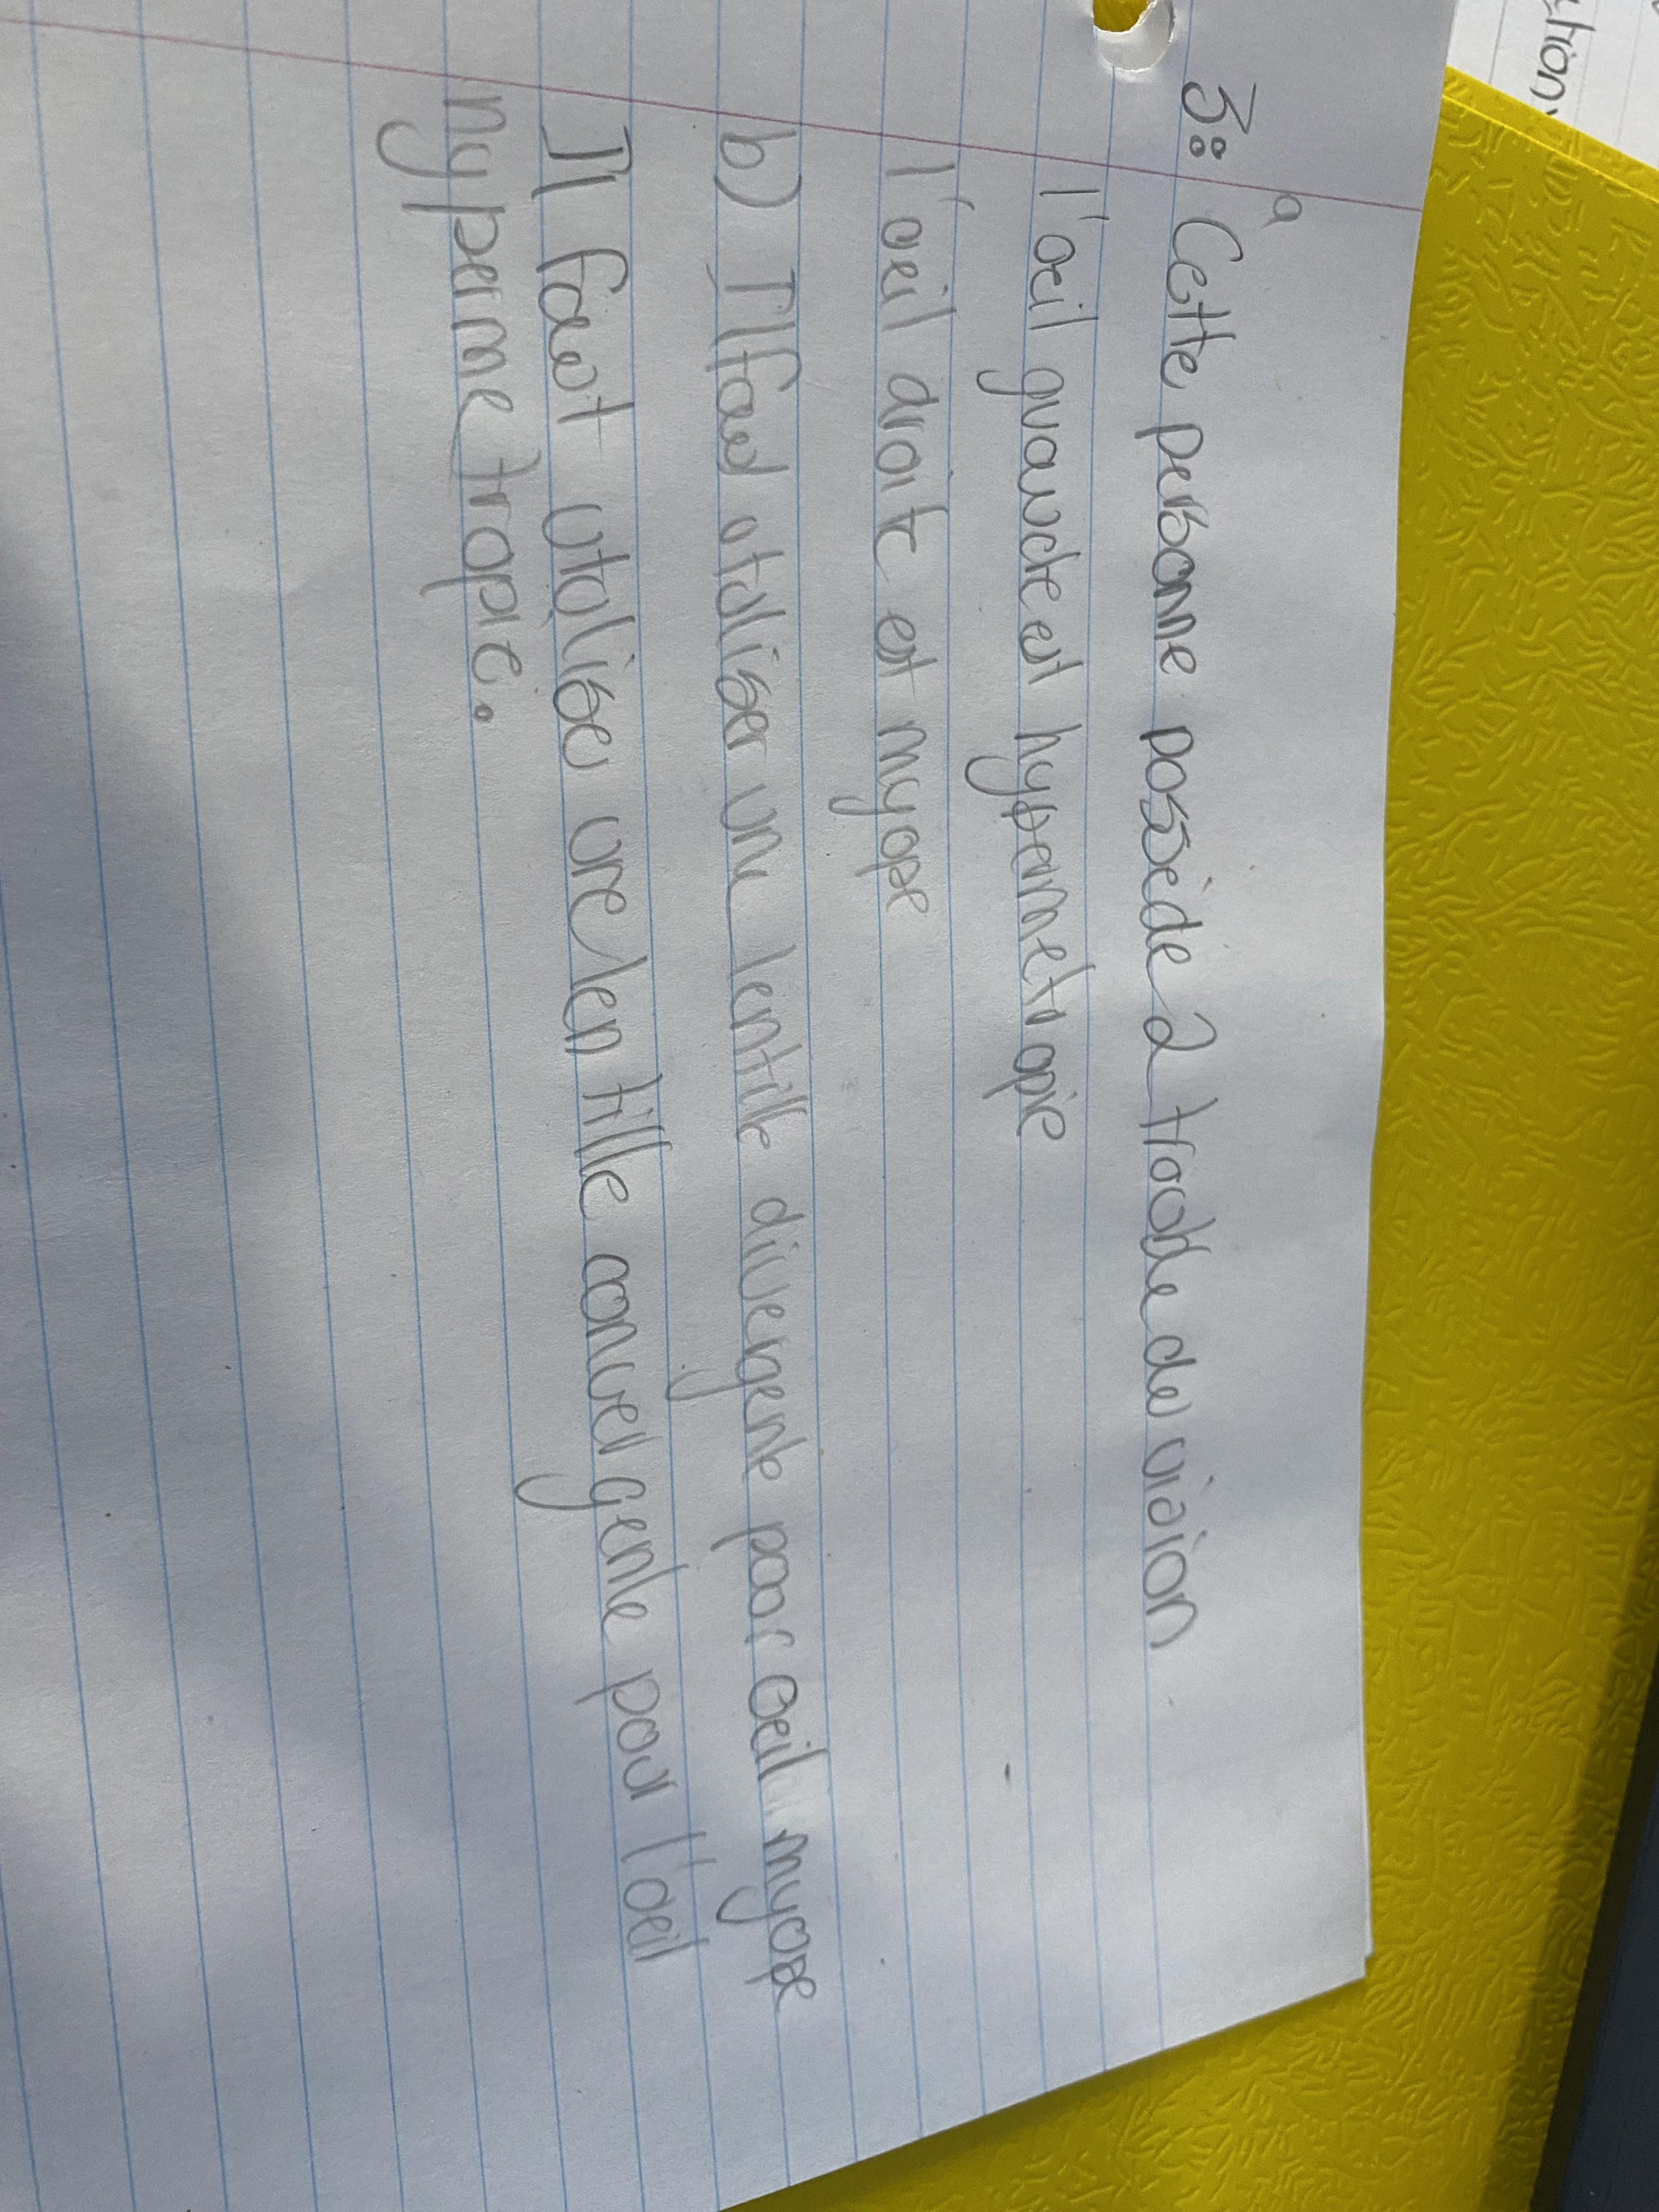 ction,
a
3: Cette personne possède 2 trouble de vision
l'oeil guauche est hypermetropie
l'oeil droite est myope
b) Il faut utuliser une lentille divergente pour oeil myope
Il faut utuliser une lentille convergente pour l'oeil
hypermetropie.